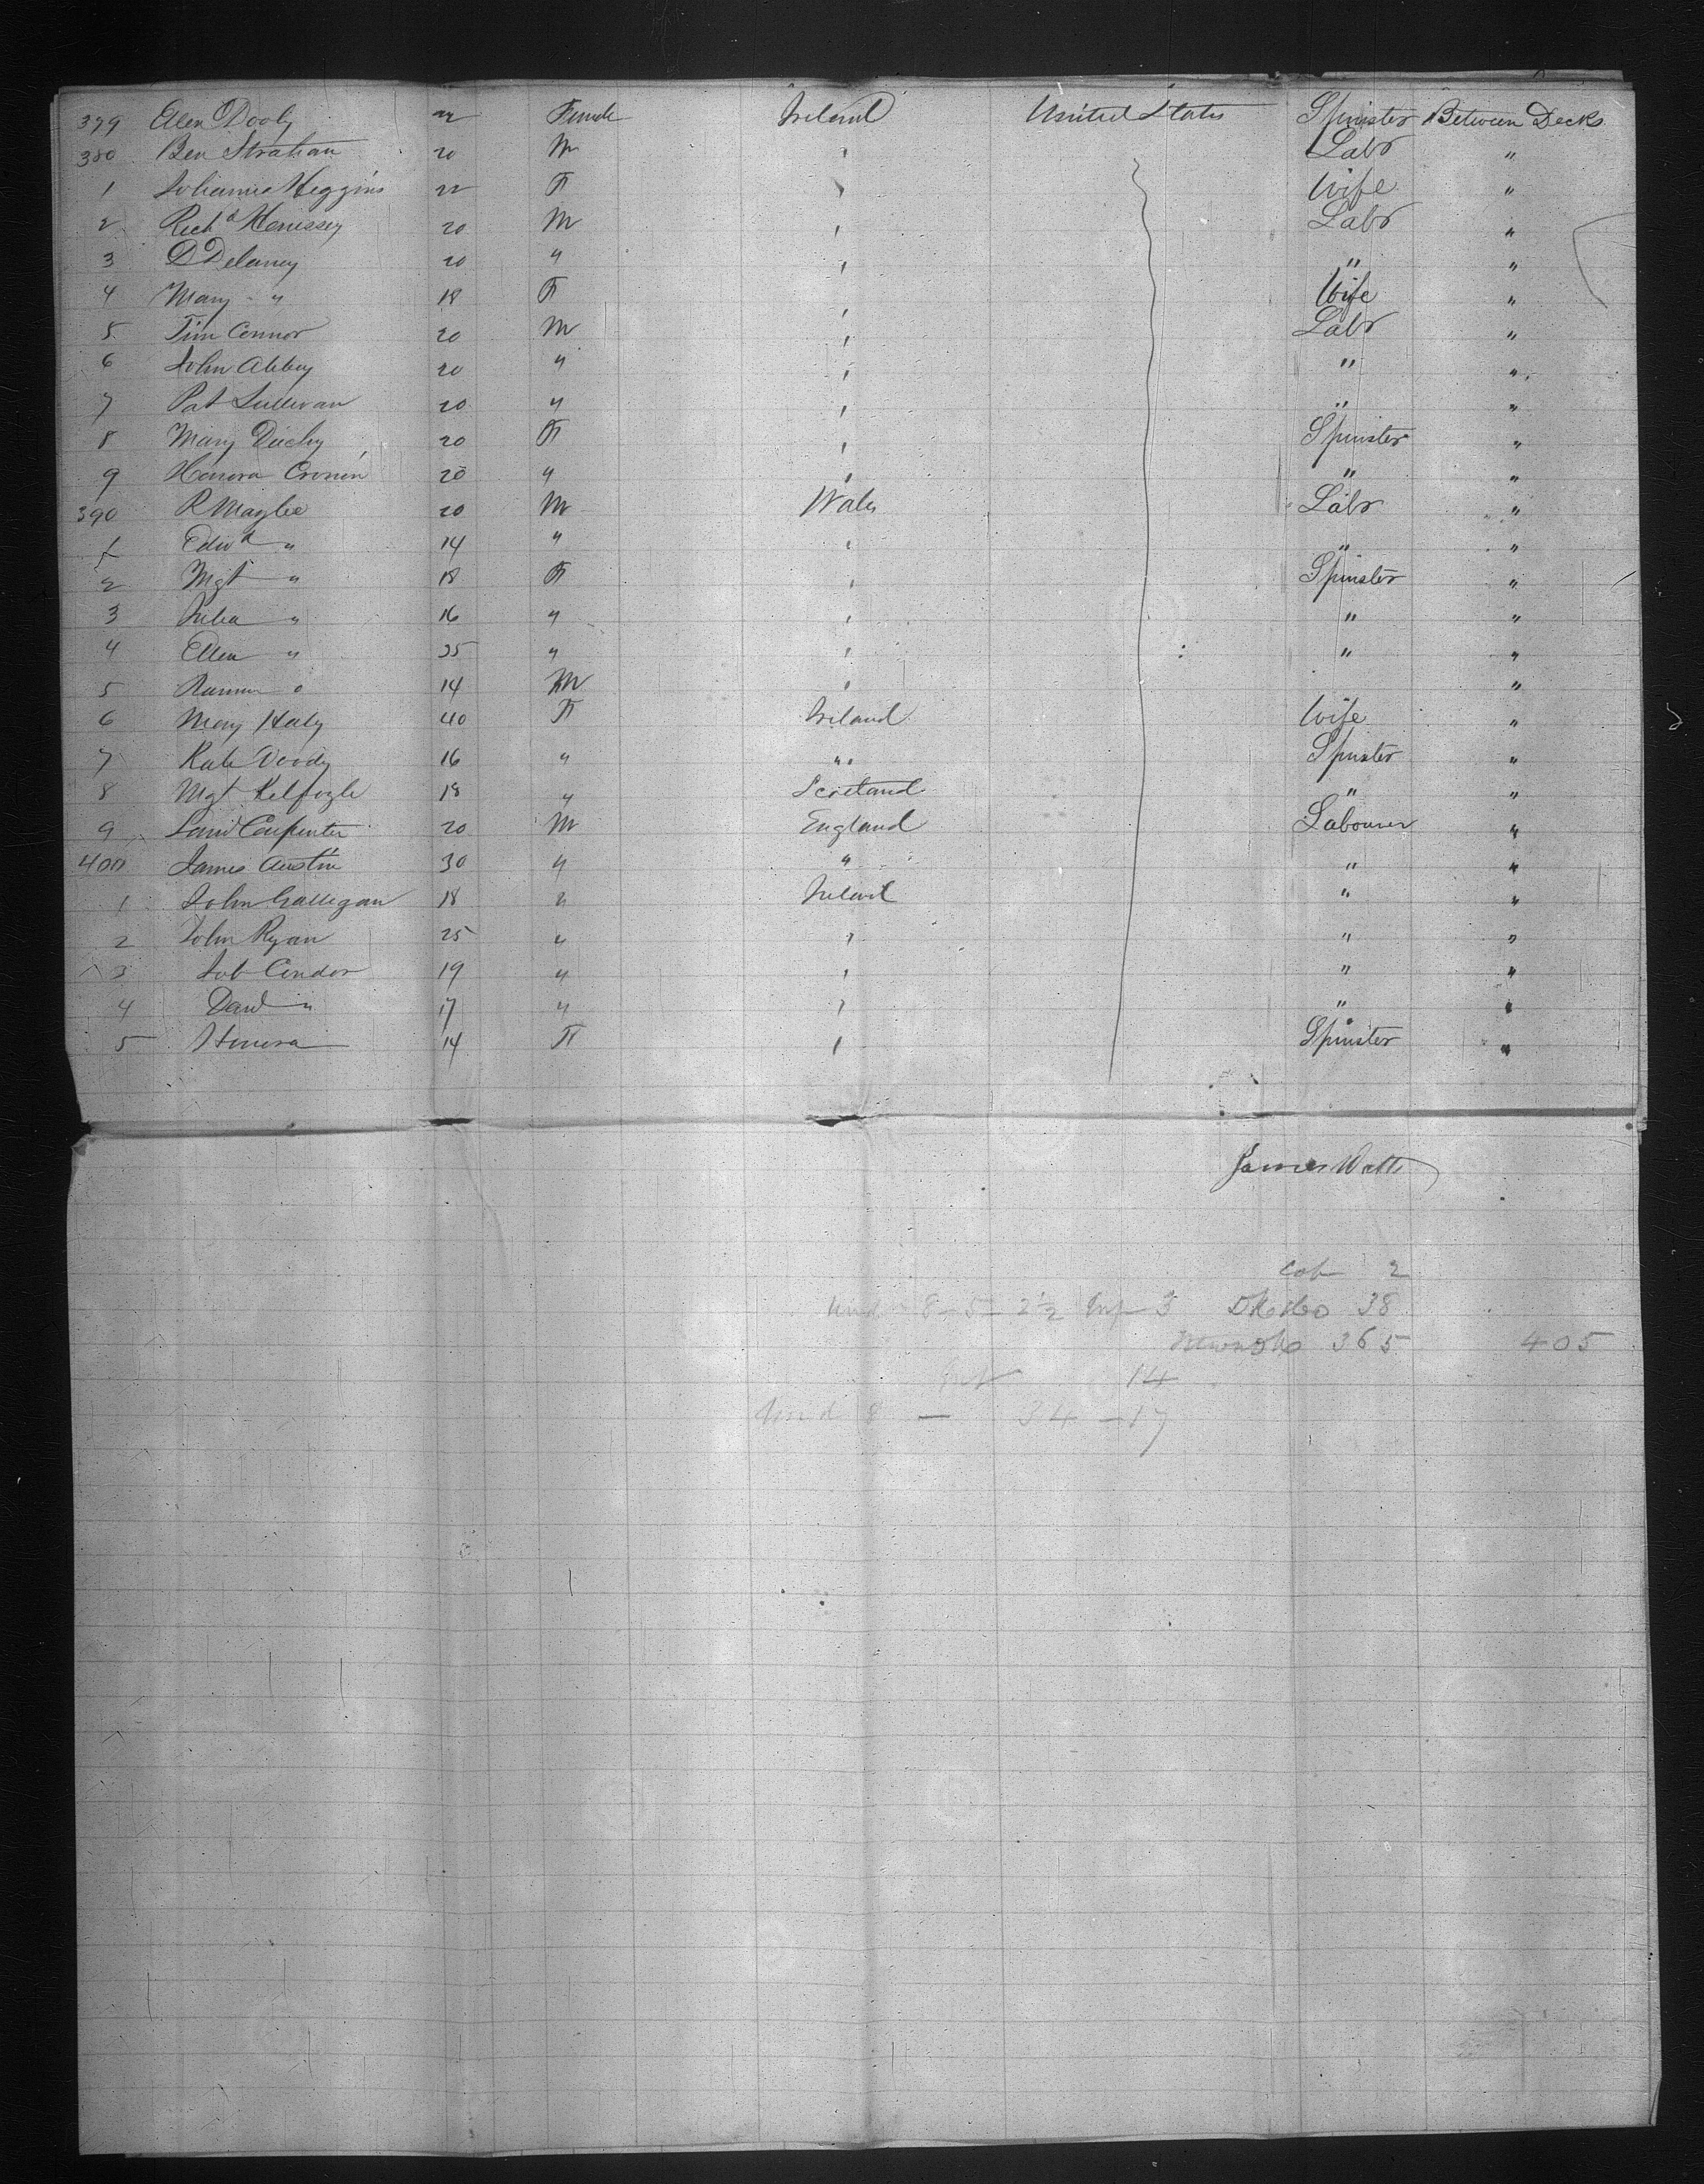 379 Elen Dooly 22 Female Ireland United States Spinster Between Decks
380 Ben Strahan 20 M " Labr "
1 Johanna Higgins 22 F " Wife "
2 Richd Henissey 20 M " Labr "
3 D Delaney 20 " " " "
4 Mary " 18 F " Wife "
5 Tim Connor 20 M " Labr "
6 John Abbey 20 " " " "
7 Pat Sullivan 20 " " " "
8 Mary 20 F " Spinster "
9 Honora Cronin 20 " " " "
390 R Maybee 20 M Wales Labr "
1 Edwd " 14 " " " "
2 Mgt " 18 F " Spinster "
3 Julia " 16 " " " "
4 Ellen " 35 " " " "
5 " 14 M " "
6 Mary Haly 40 F Ireland Wife "
7 Kate Doody 16 " " Spinster "
8 Mgt 18 " Scotland " "
9 Carpenter 20 M England Labourer "
400 James Austin 30 " " " "
1 John Galligan 18 " Ireland " "
2 John Ryan 25 " " " "
3 Condor 19 " " " "
4 " 17 " " " "
5 Honora 14 F " Spinster "
James Watts
Cab 2
Und 8 - 5 - 2½ Inf 3 38
365 405
14
Und 8 — 34 - 17